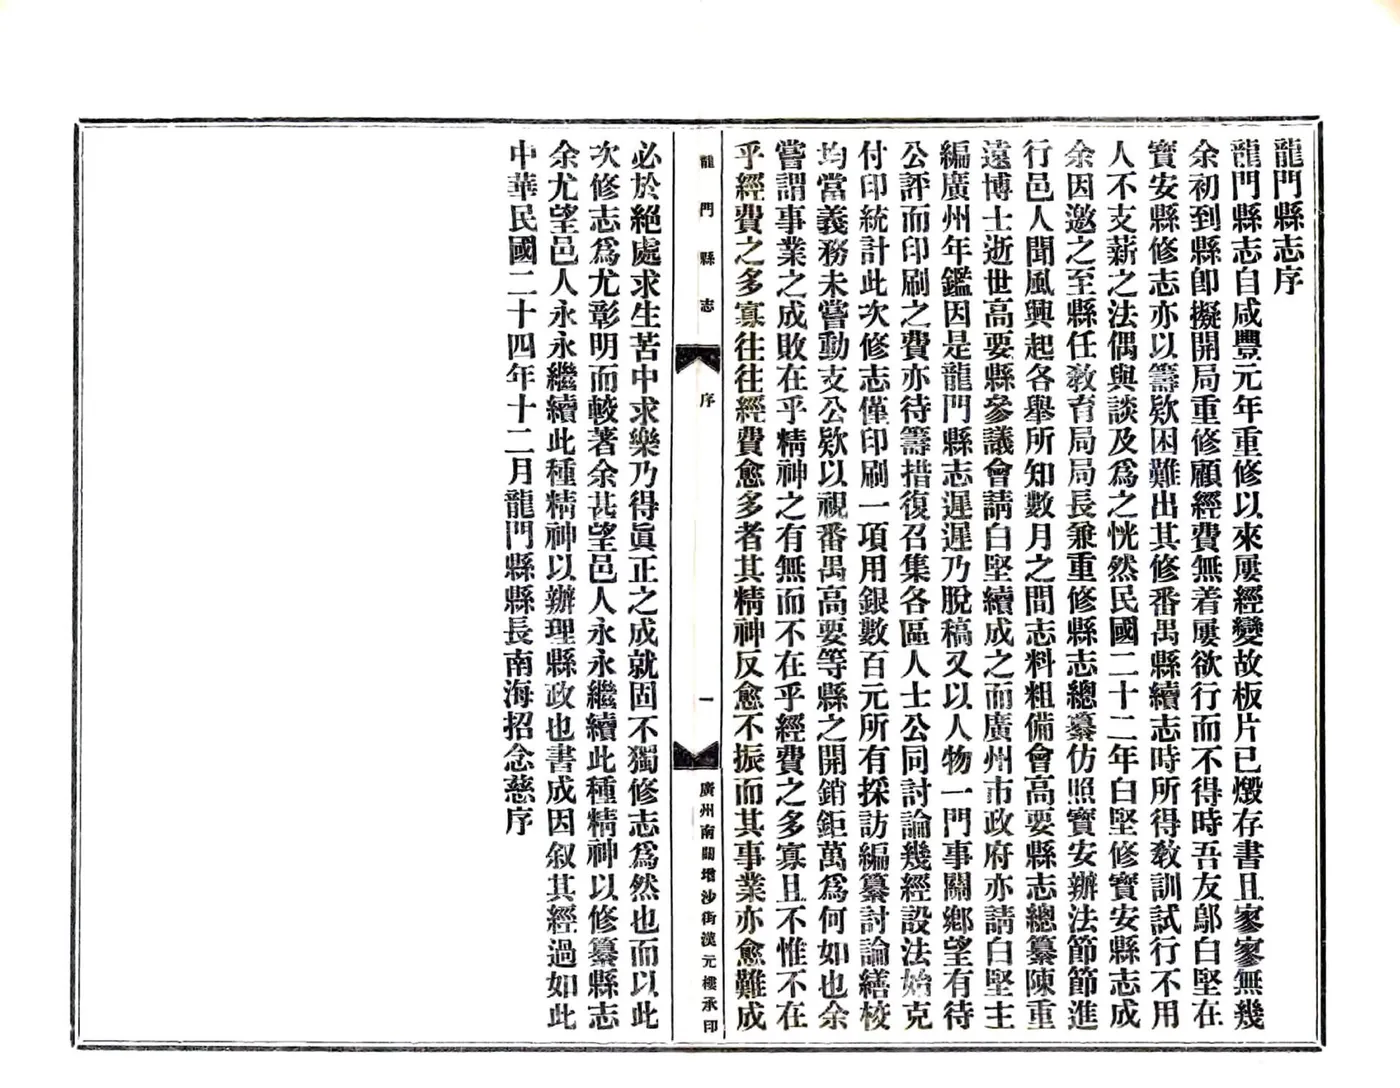 龍門縣志序
龍門縣志自咸豐元年重修以來屢經變故板片已燬存書且寥寥無幾
余初到縣卽擬開局重修顧經費無着屢欲行而不得時吾友鄔白堅在
寶安縣修志亦以籌欵困難出其修番禺縣續志時所得敎訓試行不用
人不支薪之法偶與談及爲之恍然民國二十二年白堅修寶安縣志成
余因邀之至縣任敎育局局長兼重修縣志總纂仿照寶安辦法節節進
行邑人聞風興起各舉所知數月之間志料粗備會高要縣志總纂陳重
遠博士逝世高要縣參議會請白堅續成之而廣州市政府亦請白堅主
編廣州年鑑因是龍門縣志遲遲乃脫稿又以人物一門事關鄉望有待
公評而印刷之費亦待籌措復召集各區人士公同討論幾經設法始克
付印統計此次修志僅印刷一項用銀數百元所有採訪編纂討論繕校
均當義務未嘗動支公欵以視番禺高要等縣之開銷鉅萬爲何如也余
嘗謂事業之成敗在乎精神之有無而不在乎經費之多寡且不惟不在
乎經費之多寡往往經費愈多者其精神反愈不振而其事業亦愈難成
龍門縣志 序 一 廣州南關增沙街漢元樓承印
必於絕處求生苦中求樂乃得眞正之成就固不獨修志爲然也而以此
次修志爲尤彰明而較著余甚望邑人永永繼續此種精神以修纂縣志
余尤望邑人永永繼續此種精神以辦理縣政也書成因叙其經過如此
中華民國二十四年十二月龍門縣縣長南海招念慈序